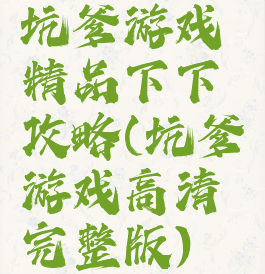 坑爹游戏
精品下下
攻略(坑爹
游戏高清
完整版)